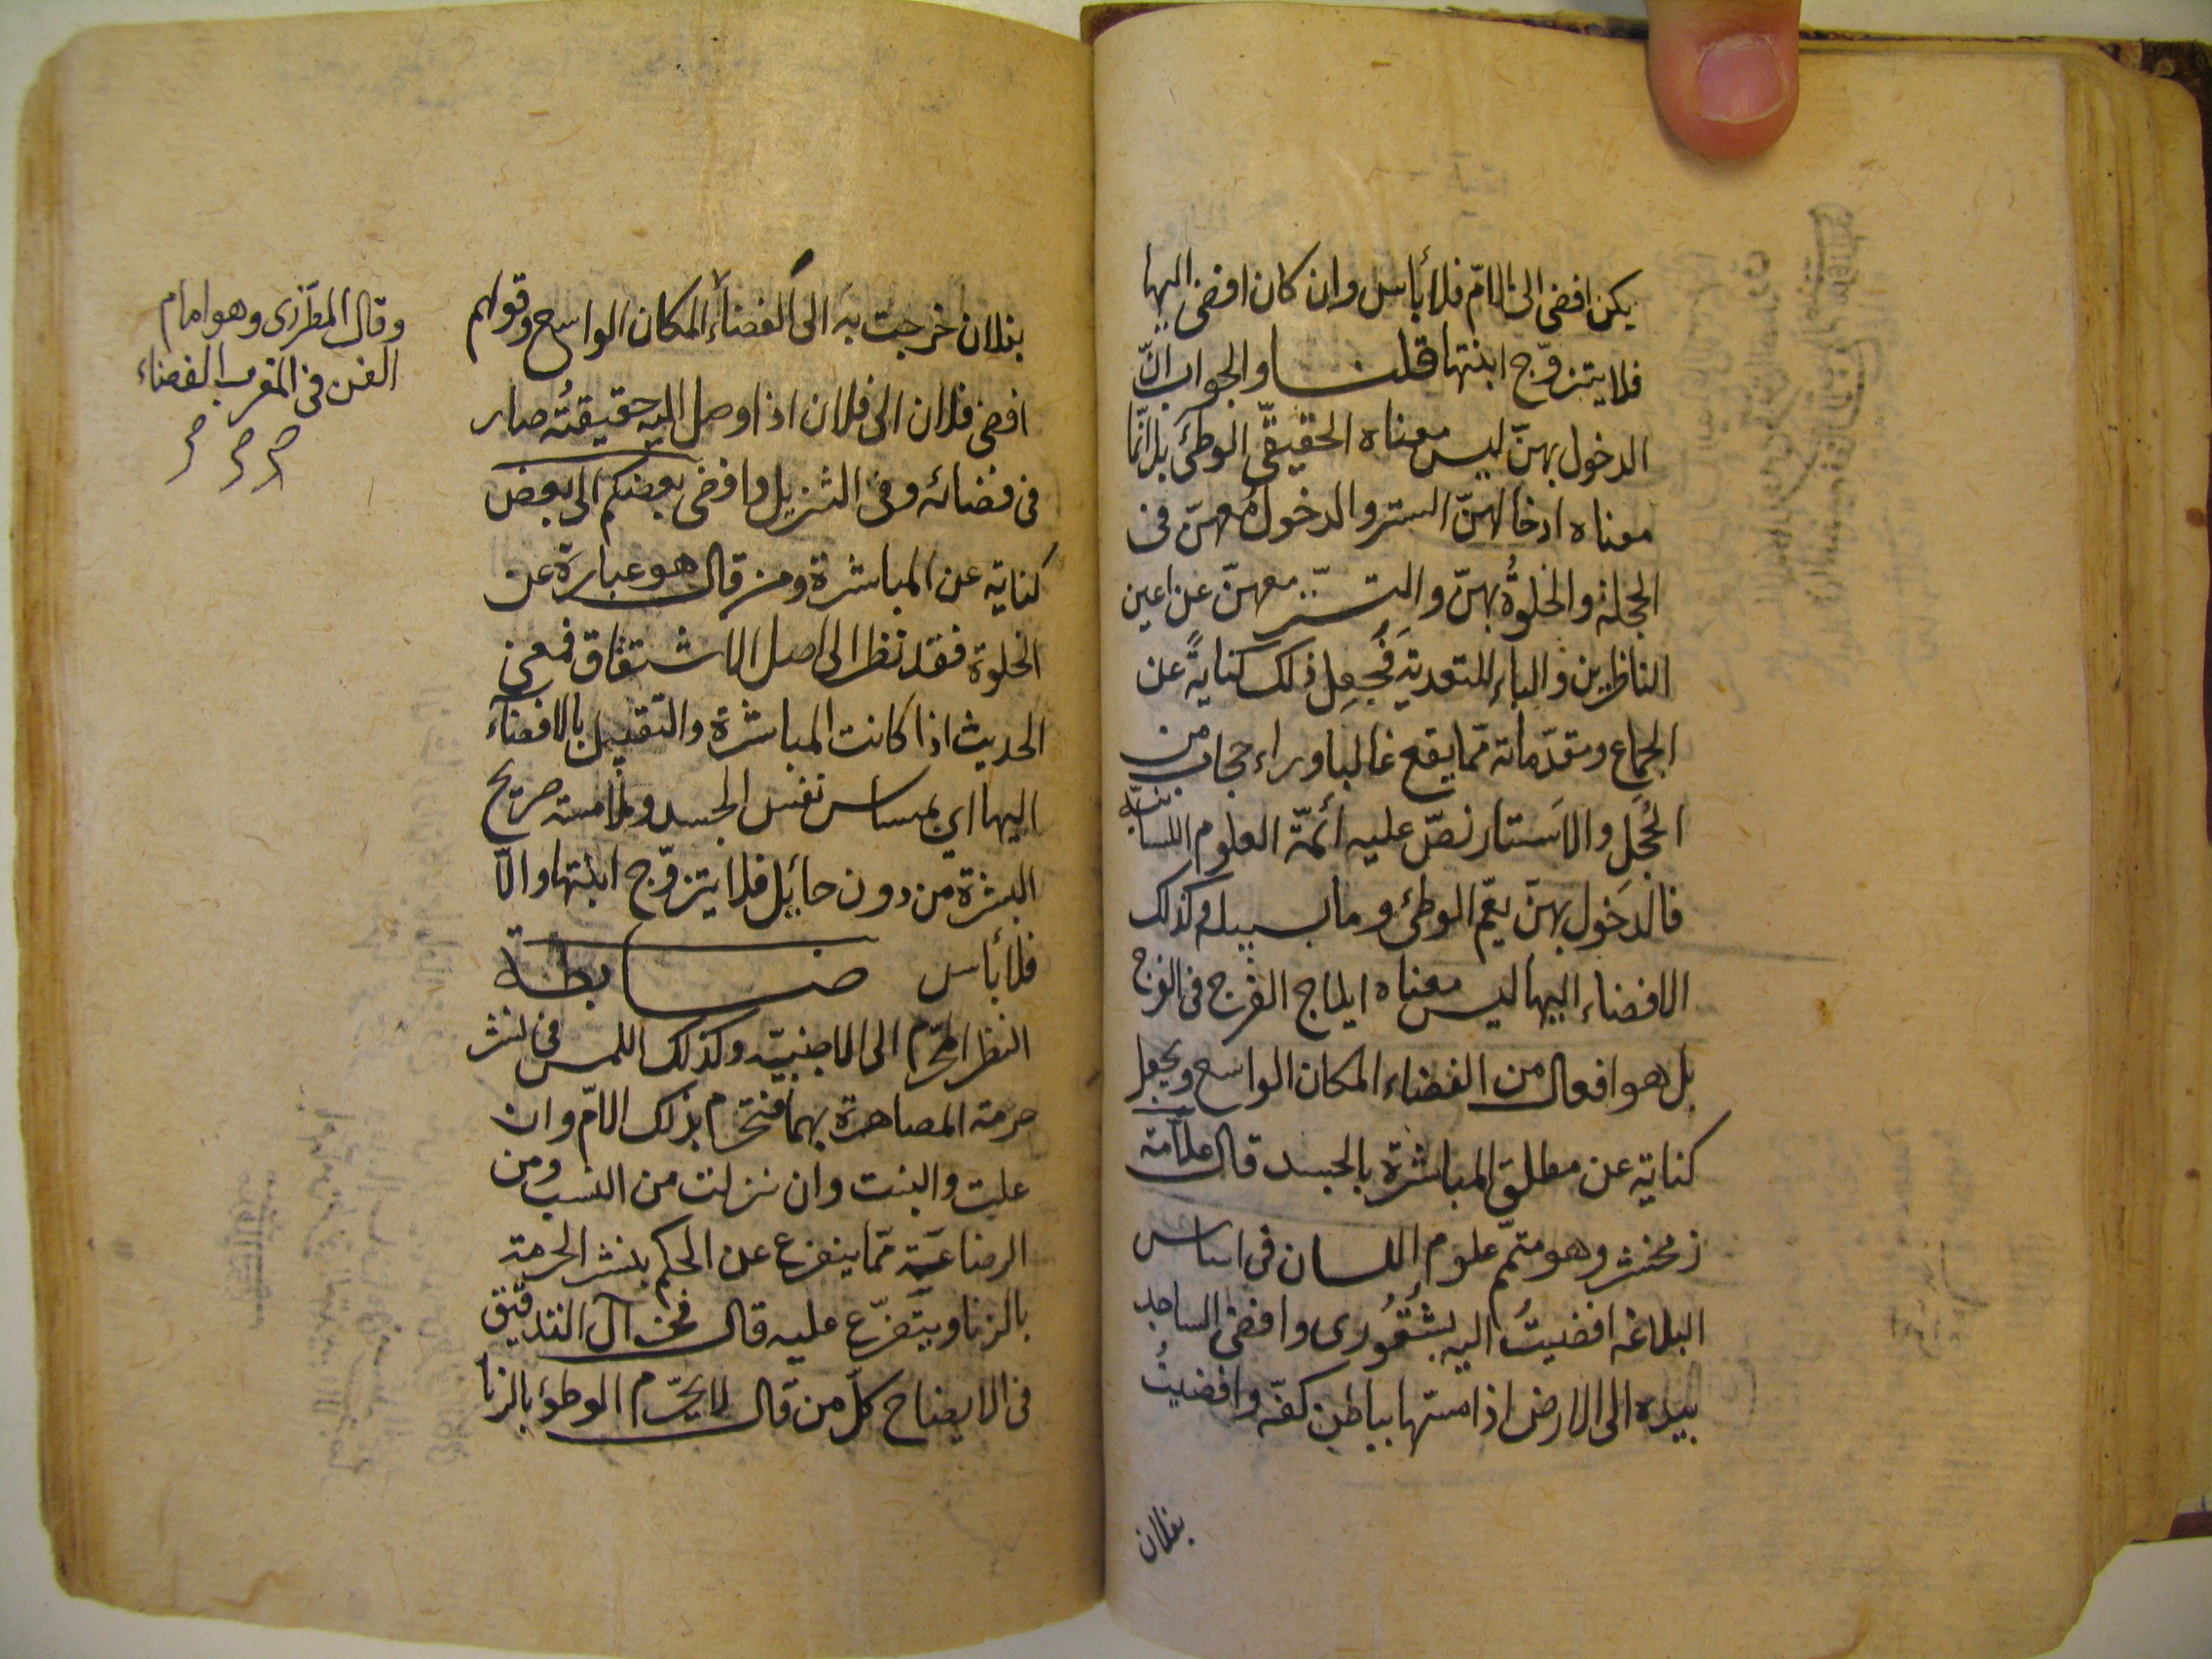 يكن افضى الى الامّ فلا بأس وان كان افضى اليها
فلا يتزوّج ابنتها قلنا والجواب انّ
الدخول بهنّ ليس معناه الحقيقّي الوطئ بل انّما
معناه ادخالهنّ الستر والدخول معهنّ فى
الحجلة والخلوةُ بهنّ والتستّر معهنّ عن اعين
الناظرين والباء للتعدية فَجُعِل ذلك كنايةً عن
الجماع ومقدّماته ممّا يقع غالبا وراء حجاب من
الحُجَل والاَستار نصّ عليه أئمّة العلوم اللسانيّة
فالدخول بهنّ يعمّ الوطئ وما بسبيله وكذلك
الافضاء اليها ليس معناه ايلاج الفرج فى الفرج
بل هو افعال من الفضاء المكان الواسع ويجعل
كناية عن مطلق المباشرة بالجسد قال علّامة
زمخشر وهو متمّم علوم اللسان فى اساس
البلاغه افضيتُ اليه بشُقُورى وافضى الساجد
بيده الى الارض اذا مسّتها بباطن كفّه وافضيتُ
بفلان
بفلان خرجت به الى الفضاء المكان الواسع وقولهم
افضى فلان الى فلان اذا وصل اليه حقيقتُه صار
فى فضائه وفى التنزيل وافضى بعضكم الى بعض
كناية عن المباشرة ومن قال هو عبارة عن
الخلوة فقد نظر الى اصل الاشتقاق فمعنى
الحديث اذا كانت المباشرة والتقبيل بالافضاء
اليها اي بمساس نفس الجسد وملامسته صريح
البشرة من دون حائِل فلا يتزوّج ابنتها والّا
فلا بأس ضابطة
النظر المحّرم الى الاجنبيّه وكذلك اللمس فى نشر
حرمة المصاهرة بهما فتحرم بذلك الامّ وان
علت والبنت وان نزلت من النسب ومن
الرضاعة ممّا يتفرع على الحكم بنشر الحرمة
بالزنا ويتفرّع عليه قال فخر آل التدقيق
فى الايضاح كلّ من قال لا يحّرم الوطؤ بالزنا
وقال المطرّزى وهو امام
الفن فى المغرب الفضاء
صح صح صح